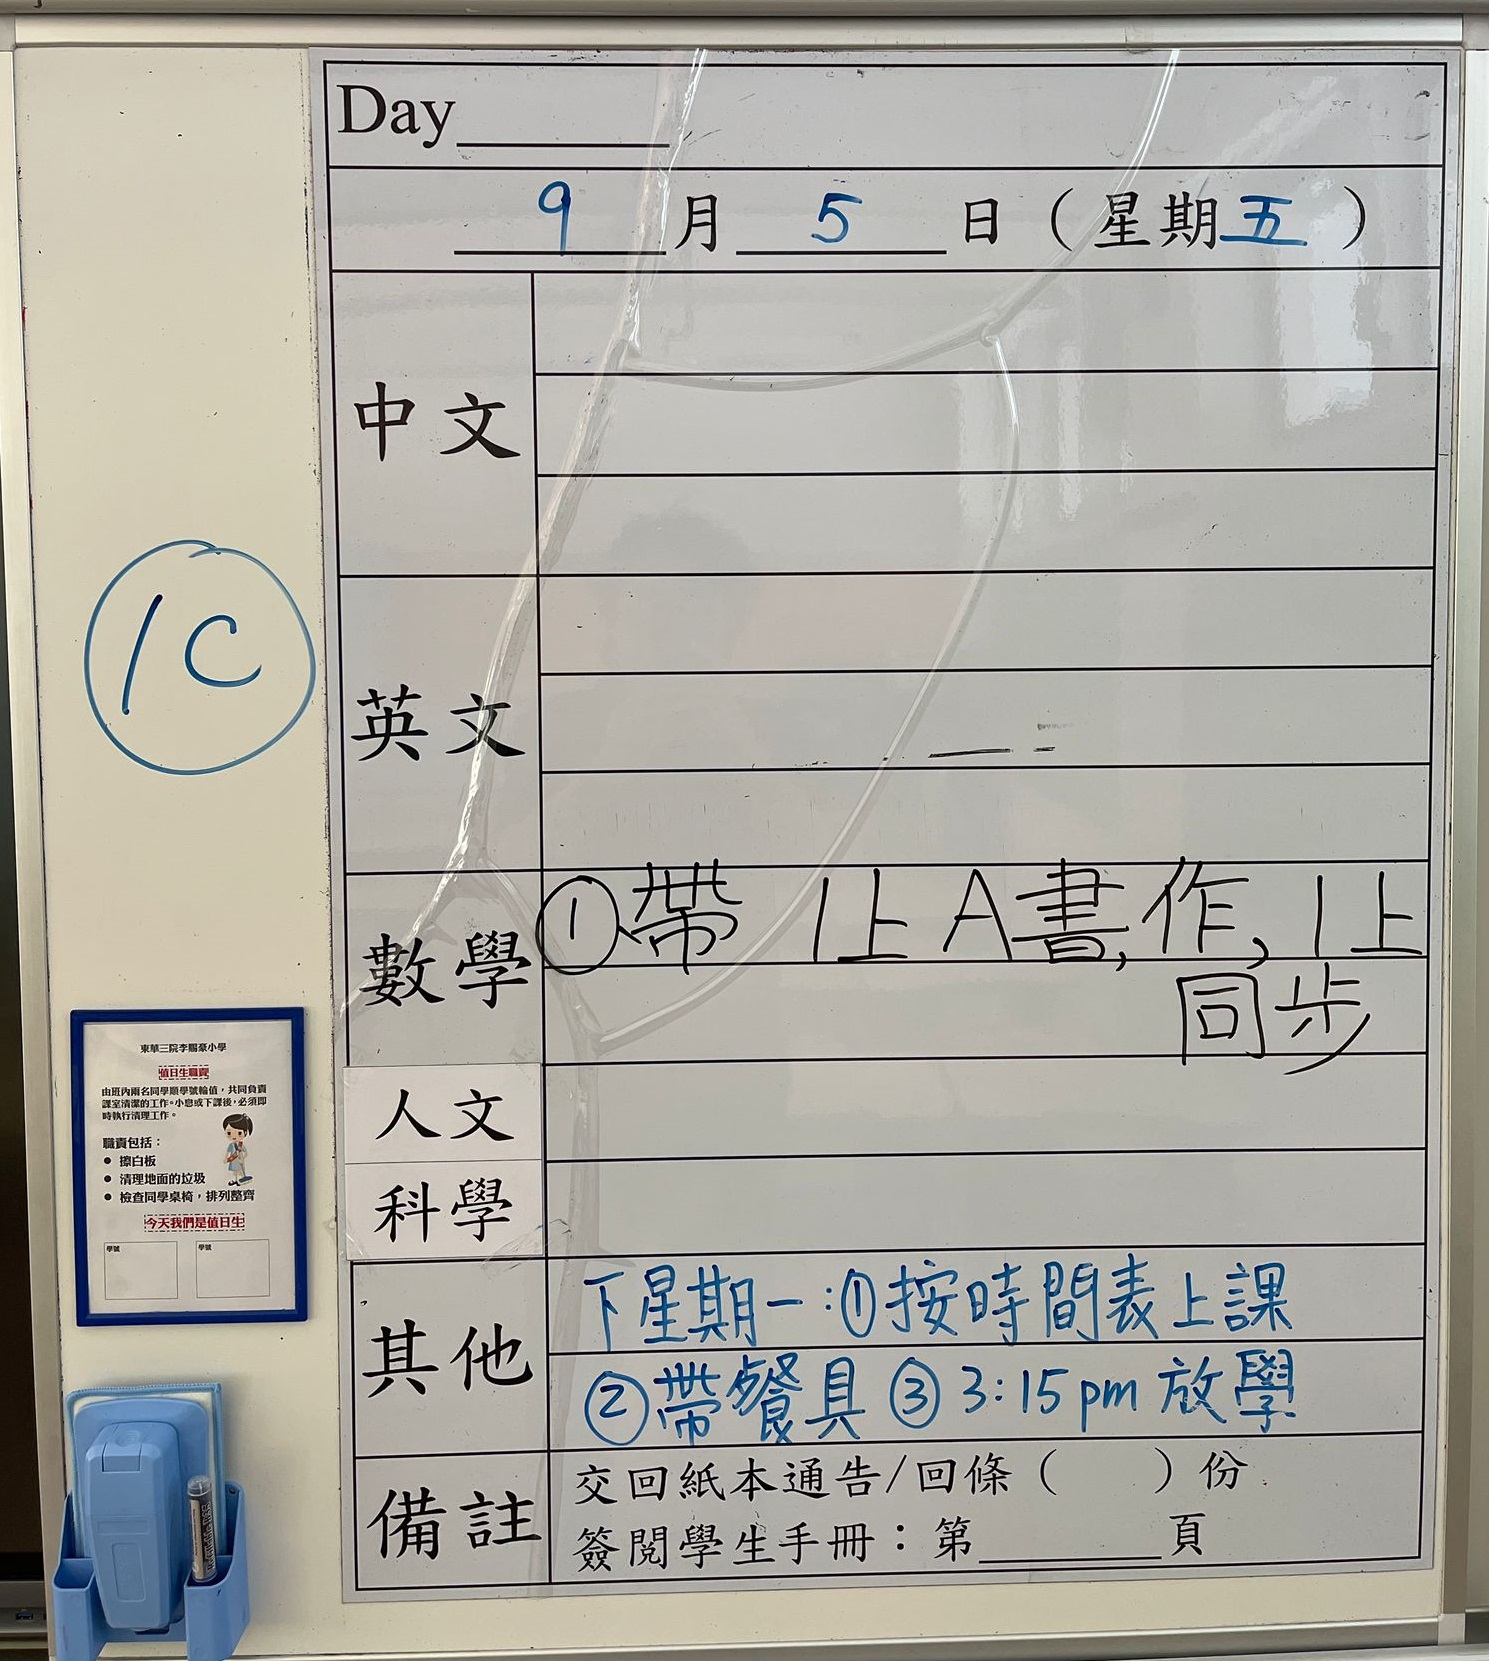 Day
9月5日（星期五）
中文
英文
數學
①帶 1上A書,作,1上
同步
人文
科學
其他
下星期一:①按時間表上課
②帶餐具 ③3:15pm放學
備註
交回紙本通告/回條（　　）份
簽閱學生手冊：第　　　頁
1C
東華三院李賜豪小學
值日生職責
由班內兩名同學順學號輪值，共同負責
課室清潔的工作。小息或下課後，必須即
時執行清理工作。
職責包括：
● 擦白板
● 清理地面的垃圾
● 檢查同學桌椅，排列整齊
今天我們是值日生
學號 學號